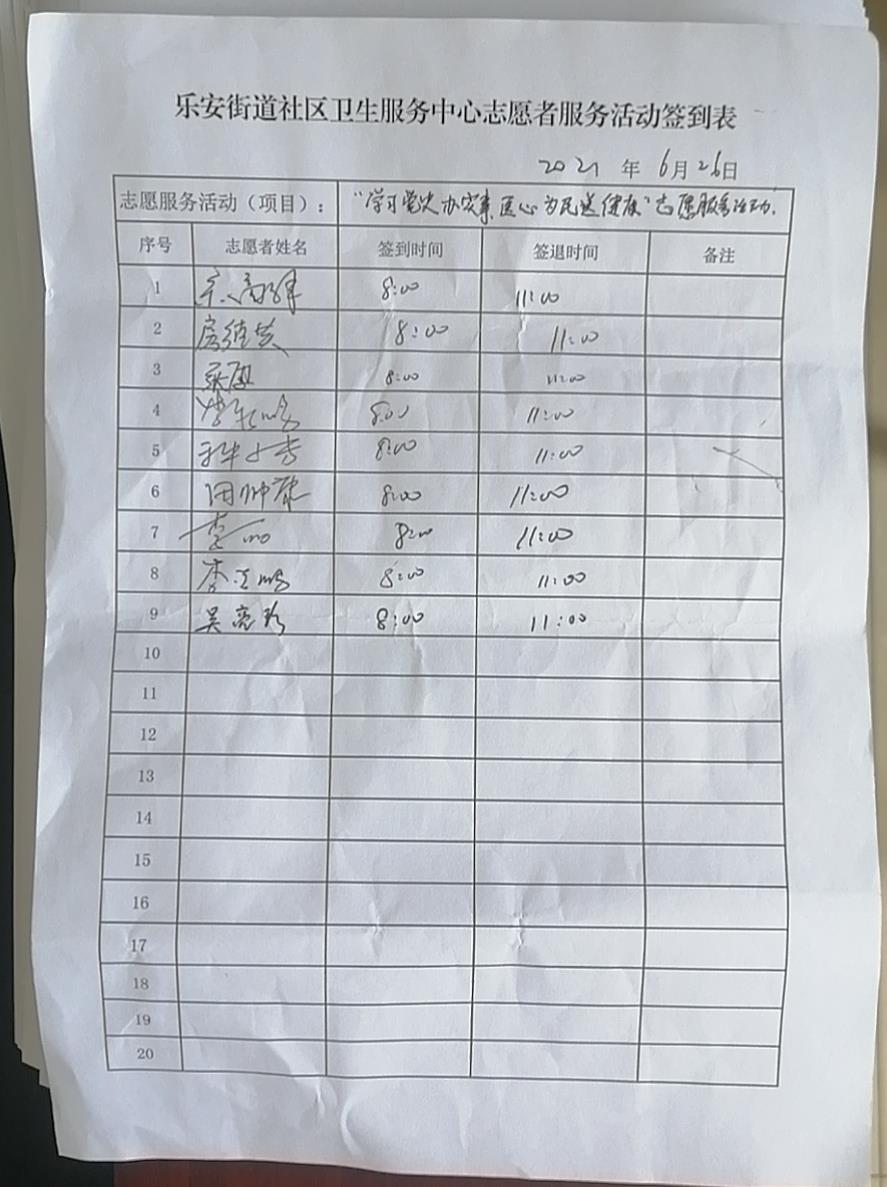 乐安街道社区卫生服务中心志愿者服务活动签到表
2021 年 6月26日
志愿服务活动（项目）： “学习党史办实事 医心为民送健康”志愿服务活动.
序号 志愿者姓名 签到时间 签退时间 备注
1 8:00 11:00
2 房德芝 8:00 11:00
3 8:00 11:00
4 8:00 11:00
5 8:00 11:00
6 田帅康 8:00 11:00
7 8:00 11:00
8 8:00 11:00
9 吴亮珍 8:00 11:00
10
11
12
13
14
15
16
17
18
19
20